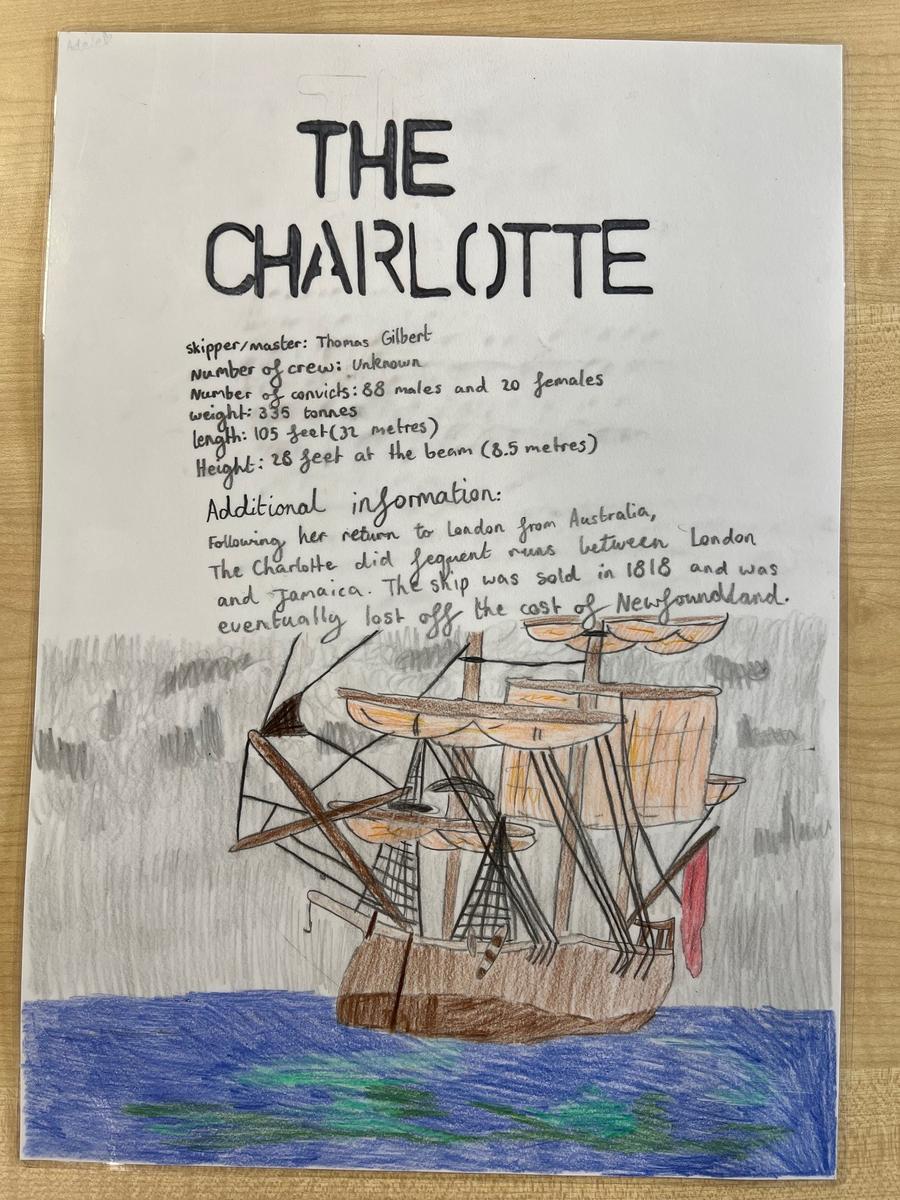 THE
CHARLOTTE
skipper/master: Thomas Gilbert
Number of crew: Unknown
Number of convicts: 88 males and 20 females
weight: 335 tonnes
length: 105 feet (32 metres)
Height: 28 feet at the beam (8.5 metres)
Additional information:
Following her return to London from Australia,
The Charlotte did fequent runs between London
and Jamaica. The ship was sold in 1818 and was
eventually lost off the cost of Newfoundland.